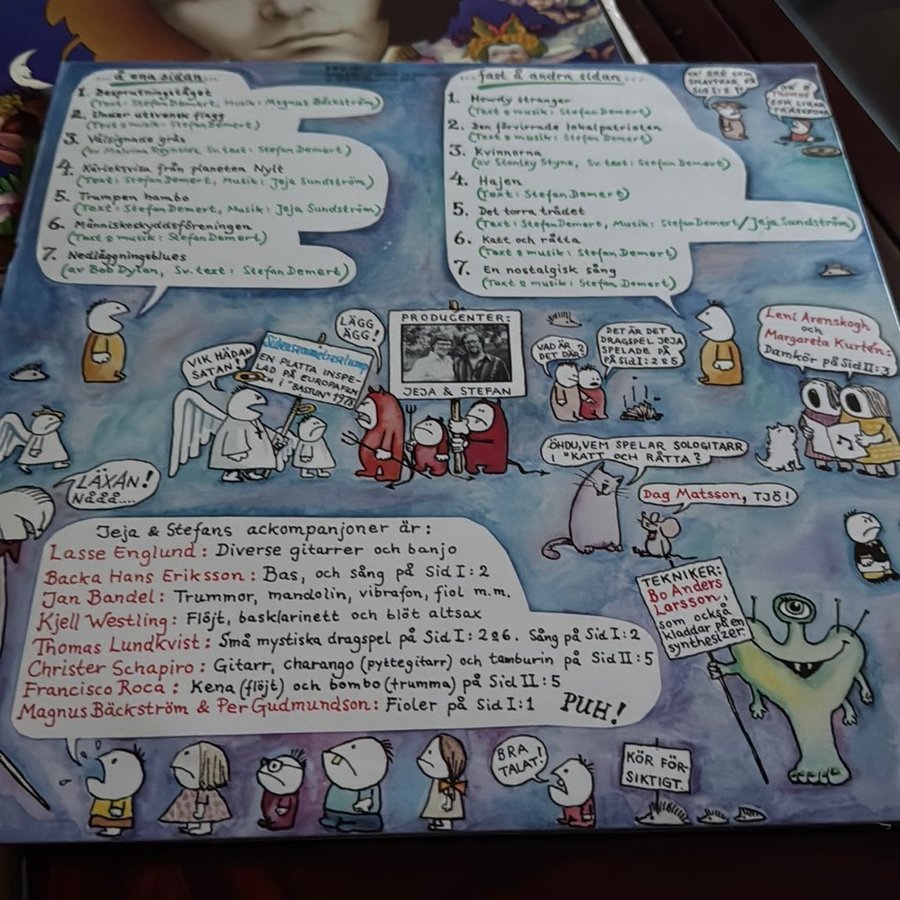 ...å ena sidan...
1. Besprutningståget
(Text: Stefan Demert, Musik: Magnus Bäckström)
2. Under utsvensk flagg
(Text & musik: Stefan Demert)
3. Välsignade gräs
(av Malvina Reynolds, Sv. text: Stefan Demert)
4. Kärleksvisa från planeten Nylt
(Text: Stefan Demert, Musik: Jeja Sundström)
5. Trampen hambo
(Text: Stefan Demert, Musik: Jeja Sundström)
6. Människoskyddsföreningen
(Text & musik: Stefan Demert)
7. Nedläggningsblues
(av Bob Dylan, Sv. text: Stefan Demert)
...fast & andra sidan...
1. Howdy stranger
(Text & musik: Stefan Demert)
2. Den förvirrade lokalpatrioten
(Text & musik: Stefan Demert)
3. Kvinnorna
(av Stanley Styne, Sv. text: Stefan Demert)
4. Hajen
(Text: Stefan Demert)
5. Det torra trädet
(Text: Stefan Demert, Musik: Stefan Demert/Jeja Sundström)
6. Katt och råtta
(Text & musik: Stefan Demert)
7. En nostalgisk sång
(Text & musik: Stefan Demert)
SID I: 2?
VIK HÄDAN
SATAN!
EN PLATTA INSPE-
LAD PÅ EUROPAFILM
OCH I "BASTUN" 19
LÄGG
ÄGG!
PRODUCENTER:
JEJA & STEFAN
VAD ÄR
DET DÄR?
DET ÄR DET
DRAGSPEL JEJA
SPELADE PÅ
PÅ SID I: 2 & 5
Leni Arenskogh
och
Margareta Kurtén:
Damkör på Sid II: 3
ÖHDU, VEM SPELAR SOLOGITARR
I "KATT OCH RÅTTA?
Dag Matsson, TJÖ!
LÄXAN!
NÅÅÅ....
Jeja & Stefans ackompanjoner är:
Lasse Englund: Diverse gitarrer och banjo
Backa Hans Eriksson: Bas, och sång på Sid I: 2
Jan Bandel: Trummor, mandolin, vibrafon, fiol m.m.
Kjell Westling: Flöjt, basklarinett och blöt altsax
Thomas Lundkvist: Små mystiska dragspel på Sid I: 2&6. Sång på Sid I: 2
Christer Schapiro: Gitarr, charango (pyttegitarr) och tamburin på Sid II: 5
Francisco Roca: Kena (flöjt) och bombo (trumma) på Sid II: 5
Magnus Bäckström & Per Gudmundson: Fioler på Sid I: 1
PUH!
TEKNIKER:
Bo Anders
Larsson,
som också
kladdar på en
synthesizer.
BRA
TALAT!
KÖR FÖR-
SIKTIGT.